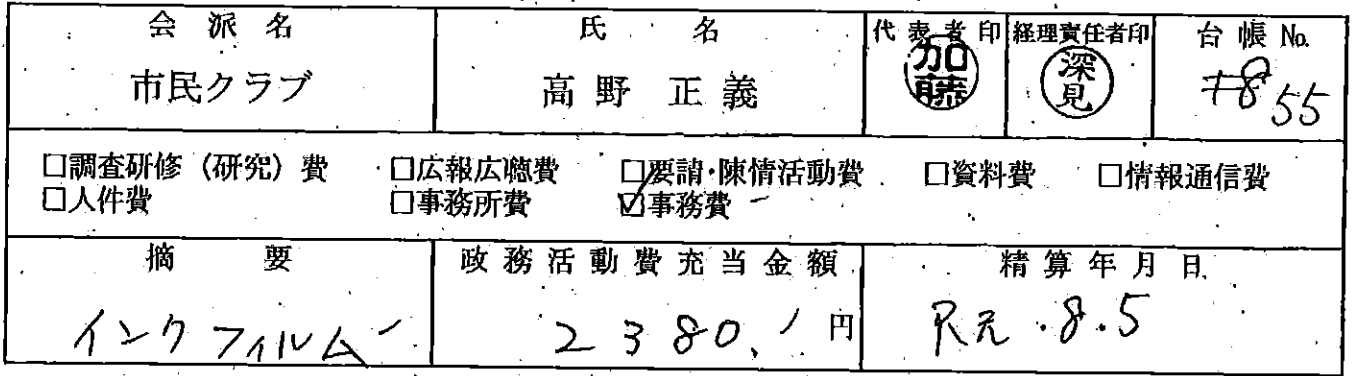 会派名 氏名 代表者印 経理責任者印 台帳 No.
市民クラブ 高野 正義 加藤 深見 55
□調査研修（研究）費 □広報広聴費 □要請・陳情活動費 □資料費 □情報通信費
□人件費 □事務所費 ☑事務費
摘要 政務活動費充当金額 精算年月日
インクフィルム 2380 円 R元.8.5